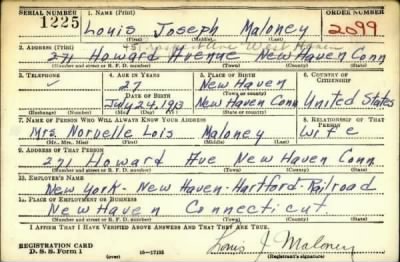 SERIAL NUMBER 1. NAME (Print) ORDER NUMBER
1225 Louis Joseph Maloney 2099
(First) (Middle) (Last)
2. ADDRESS (Print)
271 Howard Avenue New Haven Conn
(Number and street or R. F. D. number) (Town) (County) (State)
3. TELEPHONE 4. AGE IN YEARS 5. PLACE OF BIRTH 6. COUNTRY OF CITIZENSHIP
27 New Haven
DATE OF BIRTH (Town or county)
July 24, 1913 New Haven Conn United States
(Exchange) (Number) (Mo.) (Day) (Yr.) (State or country)
7. NAME OF PERSON WHO WILL ALWAYS KNOW YOUR ADDRESS 8. RELATIONSHIP OF THAT PERSON
Mrs. Norvelle Lois Maloney Wife
(Mr., Mrs., Miss) (First) (Middle) (Last)
9. ADDRESS OF THAT PERSON
271 Howard Ave New Haven Conn
(Number and street or R. F. D. number) (Town) (County) (State)
10. EMPLOYER'S NAME
New York - New Haven - Hartford - Railroad
11. PLACE OF EMPLOYMENT OR BUSINESS
New Haven Connecticut.
(Number and street or R. F. D. number) (Town) (County) (State)
I AFFIRM THAT I HAVE VERIFIED ABOVE ANSWERS AND THAT THEY ARE TRUE.
REGISTRATION CARD
D. S. S. Form 1 16—17105 Louis J. Maloney
(Registrant's signature)